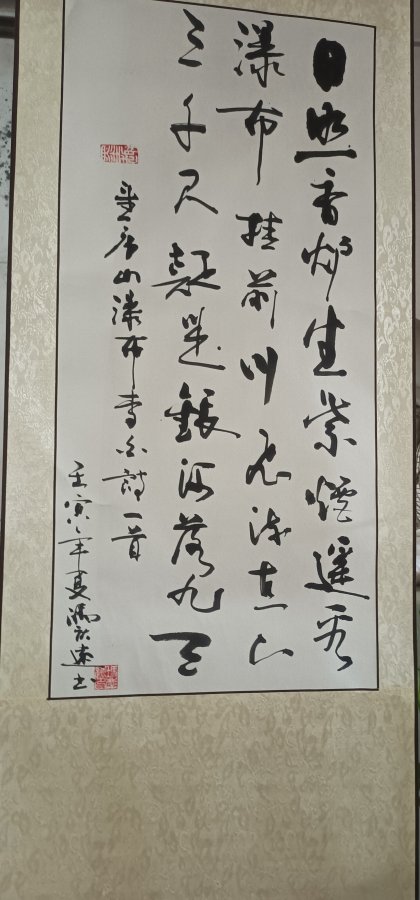 日照香炉生紫煙遥看
瀑布挂前川飞流直下
三千尺疑是銀河落九天
望庐山瀑布李白詩一首
壬寅年夏